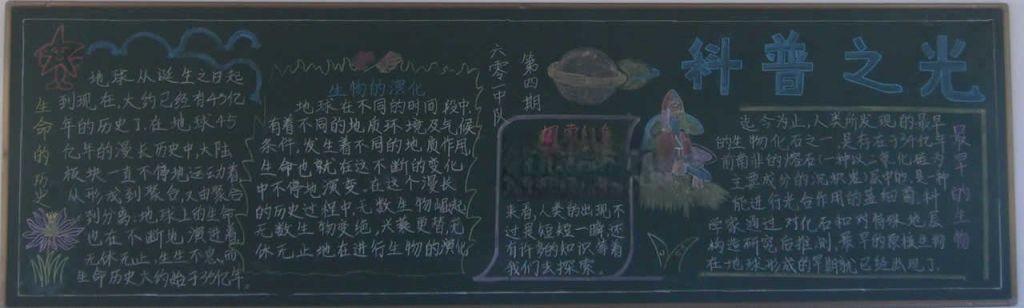 科普之光
第四期
六零一中队
生命的历史
地球从诞生之日起
到现在,大约已经有45亿
年的历史了.在地球45
亿年的漫长历史中,大陆
板块一直不停地运动着
从形成到聚合,又由聚合
到分离.地球上的生命
也在不断地演进着
无休无止,生生不息.而
生命历史大约始于35亿年.
生物的演化
地球在不同的时间段中
有着不同的地质环境及气候
条件,发生着不同的地质作用,
生命也就在这不断的变化
中不停地演变.在这个漫长
的历史过程中,无数生物崛起
无数生物灭绝,兴衰更替,无
休无止地在进行生物的演化
来看,人类的出现不
过是短短一瞬,还
有许多的知识等着
我们去探索.
最早的生物
迄今为止,人类所发现的最早
的生物化石之一,是存在于35亿年
前南非的燧石(一种以二氧化硅为
主要成分的沉积岩)层中的,是一种
能进行光合作用的蓝细菌.科
学家通过对化石和对特殊地层
构造研究后推测,最早的原核生物
在地球形成的早期就已经出现了.